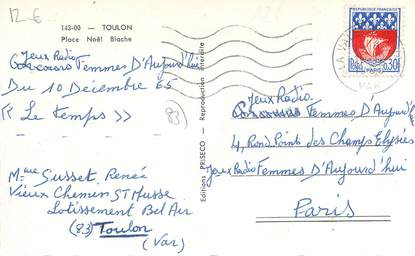 12 €
143-00 — TOULON
Place Noël Blache
Jeux Radio
Concours Femmes D'Aujourd'hui
Du 10 Décembre 65
"Le temps"
83
Mme Susset Renée
Vieux Chemin St Musse
Lotissement Bel Air
(83) Toulon
(Var)
Editions PRISECO — Reproduction interdite
PARIS
0,30
LA VA
VAR
Jeux Radio
Concours Femmes D'Aujourd'hui
4, Rond Point des Champs Elysées
Jeux Radio Femmes D'Aujourd'hui
Paris